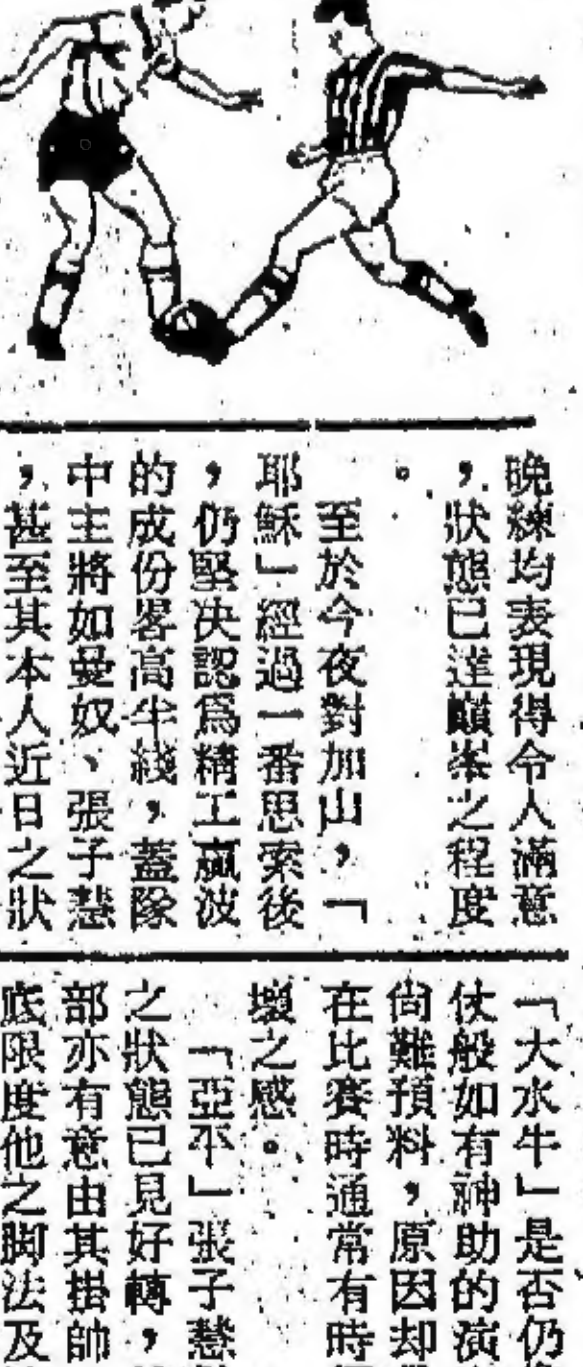 晚練均表現得令人滿意
，狀態已達巔峯之程度
。
至於今夜對加山，「
耶穌」經過一番思索後
，仍堅决認爲精工贏波
的成份畧高半綫，蓋隊
中主將如曼奴、張子慧
，甚至其本人近日之狀
「大水牛」是否仍
仗般如有神助的演
尙難預料，原因却
在比賽時通常有時
壞之感。
「亞不」張子慧
之狀態已見好轉，
部亦有意由其掛帥
底限度他之脚法及